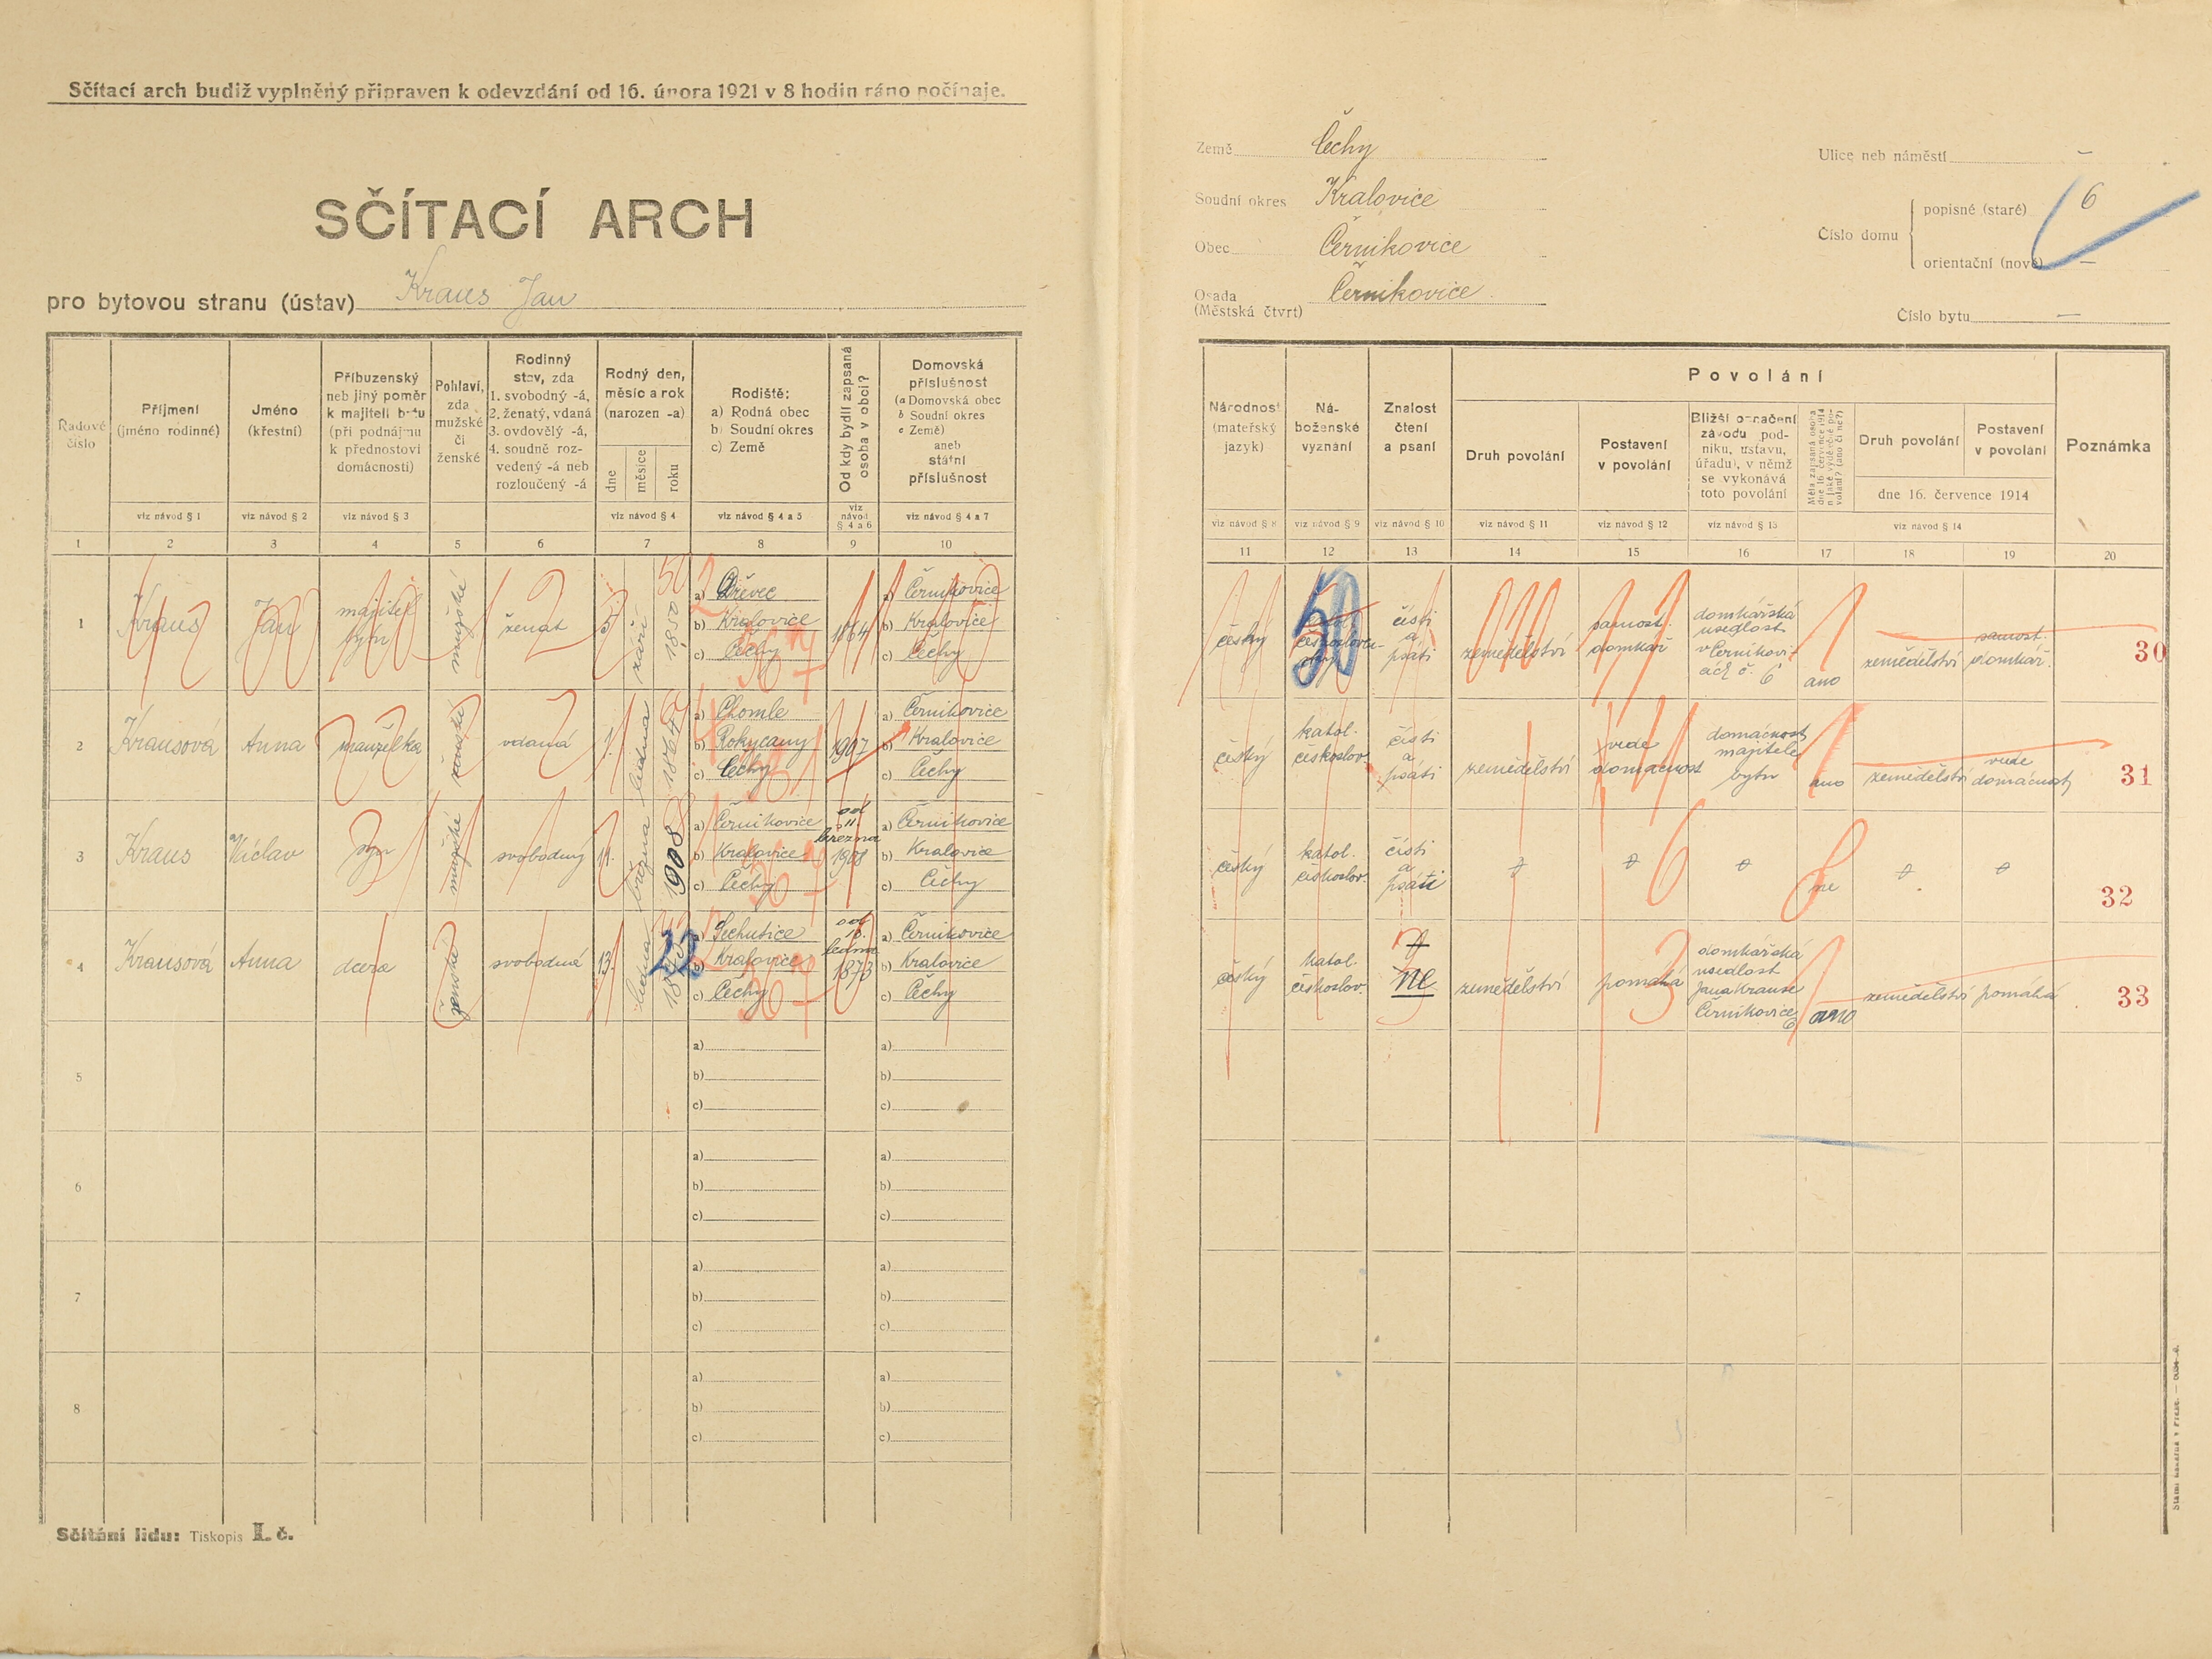 Sčítací arch budiž vyplněný připraven k odevzdání od 16. února 1921 v 8 hodin ráno počínaje.
SČÍTACÍ ARCH
pro bytovou stranu (ústav) Kraus Jan
Země Čechy
Soudní okres Kralovice
Obec Černikovice
Osada (Městská čtvrt) Černikovice
Ulice neb náměstí —
Číslo domu
popisné (staré) 6
orientační (nové) —
Číslo bytu —
Řadové číslo
Příjmení (jméno rodinné)
Jméno (křestní)
Příbuzenský neb jiný poměr k majiteli bytu (při podnájmu k přednostovi domácnosti)
Pohlaví, zda mužské či ženské
Rodinný stav, zda 1. svobodný -á, 2. ženatý, vdaná 3. ovdovělý -á, 4. soudně rozvedený -á neb rozloučený -á
Rodný den, měsíc a rok (narozen -a)
dne měsíce roku
Rodiště: a) Rodná obec b) Soudní okres c) Země
Od kdy bydlí zapsaná osoba v obci?
Domovská příslušnost (a Domovská obec b Soudní okres c Země) aneb státní příslušnost
viz návod § 1 viz návod § 2 viz návod § 3 viz návod § 4 viz návod § 4 a 5 viz návod § 4 a 6 viz návod § 4 a 7
1 2 3 4 5 6 7 8 9 10
1 Kraus Jan majitel bytu mužské ženat 5 září 1850
a) Dřevec b) Kralovice c) Čechy
1864
a) Černikovice b) Kralovice c) Čechy
2 Krausova Anna manželka ženské vdaná 1. ledna
a) Chomle b) Rokycany c) Čechy
1907
a) Černikovice b) Kralovice c) Čechy
3 Kraus Václav syn mužské svobodný 11. března 1908
a) Černikovice b) Kralovice c) Čechy
od 11 března 1908
a) Černikovice b) Kralovice c) Čechy
4 Krausová Anna dcera ženské svobodná 13. ledna
a) Sechutice b) Kralovice c) Čechy
od ledna 1873
a) Černikovice b) Kralovice c) Čechy
5 a) b) c) a) b) c)
6 a) b) c) a) b) c)
7 a) b) c) a) b) c)
8 a) b) c) a) b) c)
Sčítání lidu: Tiskopis I. č.
Národnost (mateřský jazyk)
Náboženské vyznání
Znalost čtení a psaní
Povolání
Druh povolání
Postavení v povolání
Bližší označení závodu podniku, ústavu, úřadu), v němž se vykonává toto povolání
Měla zapsaná osoba dne 16. července 1914 nějaké výdělečné povolání? (ano či ne?)
Druh povolání
Postavení v povolání
dne 16. července 1914
Poznámka
viz návod § 8 viz návod § 9 viz návod § 10 viz návod § 11 viz návod § 12 viz návod § 13 viz návod § 14
11 12 13 14 15 16 17 18 19 20
český 50 čísti a psáti zemědělství samost. domkář domkářská usedlost v Černikovicách č. 6 ano zemědělství samost. domkář. 30
český katol. českoslov. čísti a psáti zemědělství vede domácnost domácnost majitele bytu ano zemědělství vede domácnost 31
český katol. českoslov. čísti a psáti ne 32
český katol. českoslov. ne zemědělství pomáhá domkářská usedlost Jana Krause Černikovice 6 ano zemědělství pomáhá 33